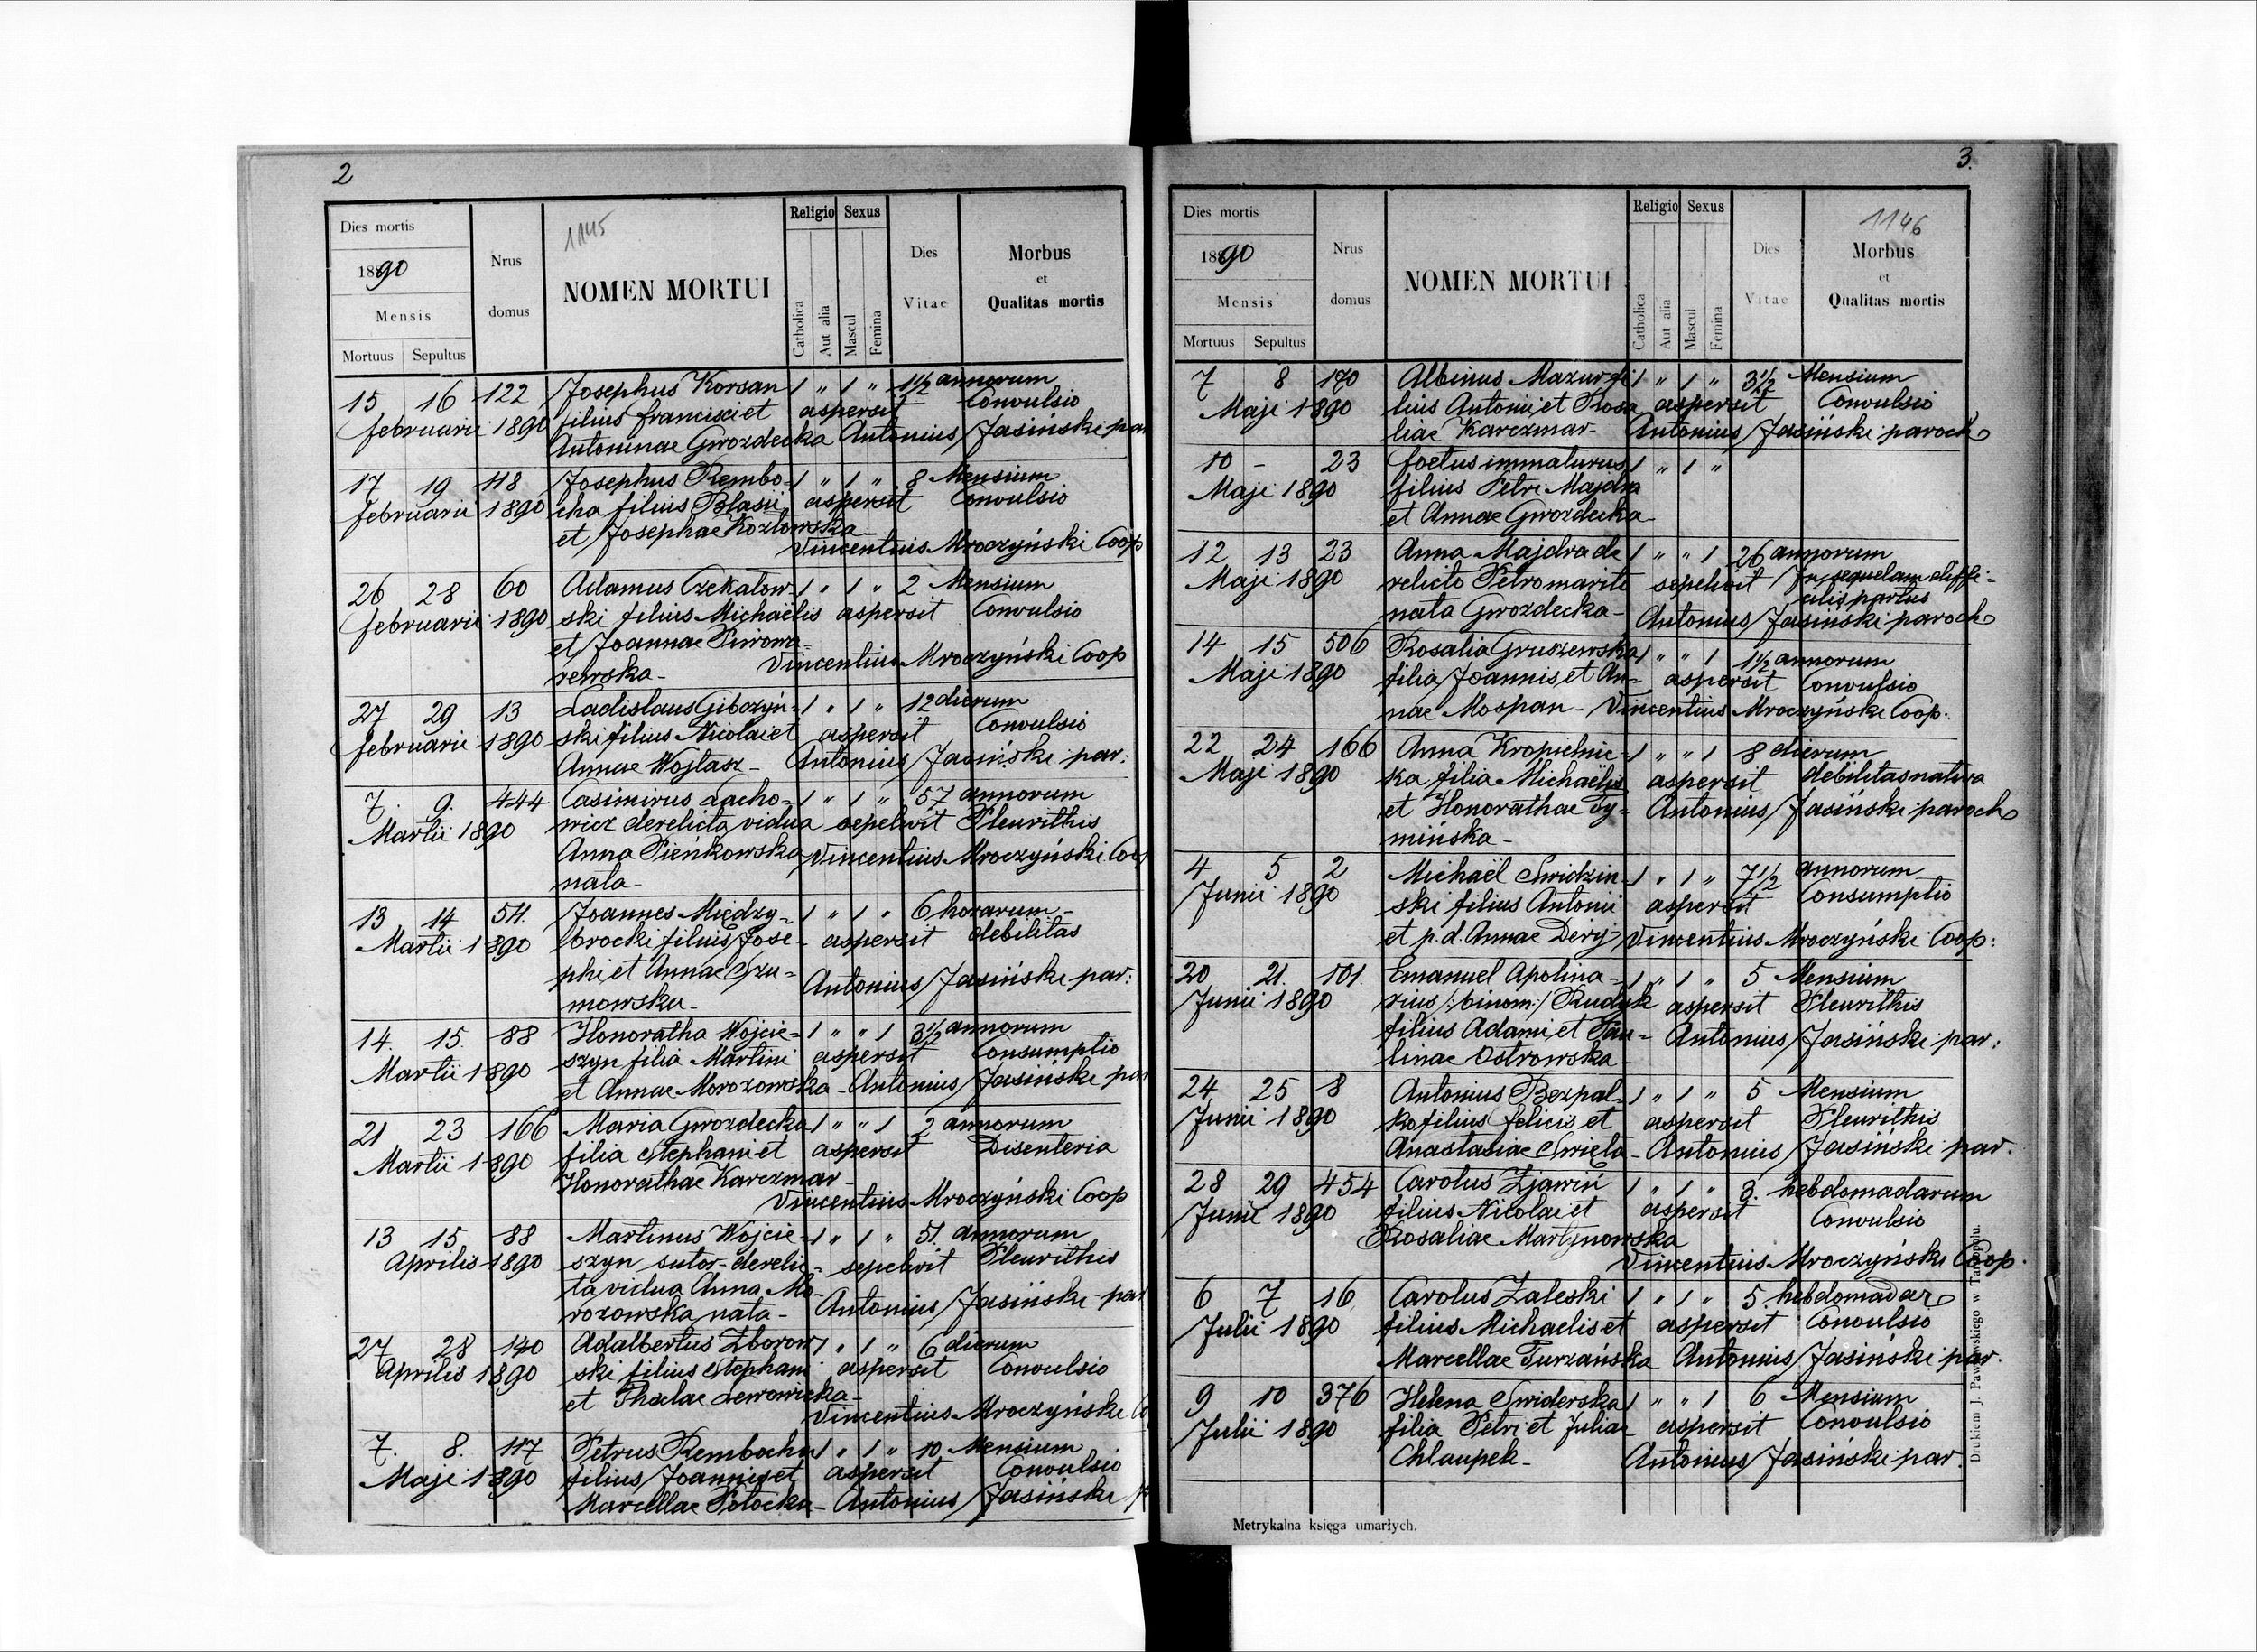 2
Dies mortis
1890
Mensis
Mortuus Sepultus
Nrus domus
1145
NOMEN MORTUI
Religio Sexus
Catholica Aut alia Mascul Femina
Dies Vitae
Morbus
et
Qualitas mortis
15 16 122 Josephus Korsan 1 " 1 " 1 1/2 annorum
februarii 1890 filius Francisci et aspersit Convulsio
Antoninae Gwozdecka Antonius Jasiński par
17 19 118 Josephus Rembo- 1 " 1 " 8 Mensium
februarii 1890 cha filius Blasii aspersit Convulsio
et Josephae Kozłowska
Vincentius Mroczyński Coop
26 28 60 Adamus Czekalow- 1 " 1 " 2 Mensium
februarii 1890 ski filius Michaëlis aspersit Convulsio
et Joannae
Vincentius Mroczyński Coop
27 29 13 Ladislaus Gibczyń- 1 " 1 " 12 dierum
februarii 1890 ski filius Nicolai et aspersit Convulsio
Annae Wojtasz - Antonius Jasiński par:
7. 9. 444 Casimirus Lacho- 1 " 1 " 57 annorum
Martii 1890 wicz derelicta vidua sepelivit Pleurithis
Anna Pieńkowska Vincentius Mroczyński Coo
nata -
13 14 511. Joannes Między- 1 " 1 " 6 horarum -
Martii 1890 brocki filius Jose- aspersit debilitas
phi et Annae Szu-
Antonius Jasiński par:
mowska -
14. 15. 88 Honoratha Wojcie- 1 " " 1 3 1/2 annorum
Martii 1890 szyn filia Martini aspersit Consumptio
et Annae Morozowska - Antonius Jasiński par
21 23 166 Maria Gwozdecka 1 " " 1 2 annorum
Martii 1890 filia Stephani et aspersit Disenteria
Honorathae Karczmar -
Vincentius Mroczyński Coop
13 15 88 Martinus Wojcie- 1 " 1 " 51. annorum
Aprilis 1890 szyn sutor - derelic- sepelivit Pleurithis
ta vidua Anna Mo-
rozowska nata - Antonius Jasiński par
27 28 140 Adalbertus Zborow 1 " 1 " 6 dierum
Aprilis 1890 ski filius Stephani aspersit Convulsio
et Theclae Lewowicka -
Vincentius Mroczyński Co
7. 8. 117 Petrus Rembocha 1 " 1 " 10 Mensium
Maji 1890 filius Joannis et aspersit Convulsio
Marcellae Potocka - Antonius Jasiński p
3.
Dies mortis
1890
Mensis
Mortuus Sepultus
Nrus domus
NOMEN MORTUI
Religio Sexus
Catholica Aut alia Mascul Femina
Dies Vitae
1146
Morbus
et
Qualitas mortis
7 8 170 Albinus Mazur fi 1 " 1 " 3 1/2 Mensium
Maji 1890 lius Antonii et Rosa aspersit Convulsio
liae Karczmar - Antonius Jasiński paroch
10 - 23 foetus immaturus 1 " 1 "
Maji 1890 filius Petri Majdra
et Annae Gwozdecka -
12 13 23 Anna Majdra de 1 " " 1 26 annorum
Maji 1890 relicto Petro marito sepelivit In sequelam diffi-
cilis partus
nata Gwozdecka - Antonius Jasiński paroch
14 15 506 Rosalia Gruszewska 1 " " 1 1 1/2 annorum
Maji 1890 filia Joannis et An- aspersit Convulsio
nae Mospan - Vincentius Mroczyński Coop:
22 24 166 Anna Kropielnic- 1 " " 1 8 dierum
Maji 1890 ka filia Michaëlis aspersit debilitas nativa
et Honorathae Ty- Antonius Jasiński paroch
mińska -
4 5 2 Michaël Swidzin- 1 " 1 " 7 1/2 annorum
Junii 1890 ski filius Antonii aspersit Consumptio
et p. d. Annae Dery Vincentius Mroczyński Coop:
20 21. 101. Emanuel Apolina- 1 " 1 " 5 Mensium
Junii 1890 rius /:binom:/ Rudyk aspersit Pleurithis
filius Adami et Pau- Antonius Jasiński par:
linae Ostrowska -
24 25 8 Antonius Bezpal- 1 " 1 " 5 Mensium
Junii 1890 ko filius Felicis et aspersit Pleurithis
Anastasiae Swięta - Antonius Jasiński par.
28 29 454 Carolus Zjawiń 1 " 1 " 3. hebdomadarum
Junii 1890 filius Nicolai et aspersit Convulsio
Rosaliae Martynowska
Vincentius Mroczyński Coop.
6 7 16 Carolus Zaleski 1 " 1 " 5. hebdomadar
Julii 1890 filius Michaelis et aspersit Convulsio
Marcellae Turzańska Antonius Jasiński par.
9 10 376 Helena Swiderska 1 " " 1 6 Mensium
Julii 1890 filia Petri et Juliae aspersit Convulsio
Chlaupek - Antonius Jasiński par.
Metrykalna księga umarłych.
Drukiem J. Pawłowskiego w Tarnopolu.